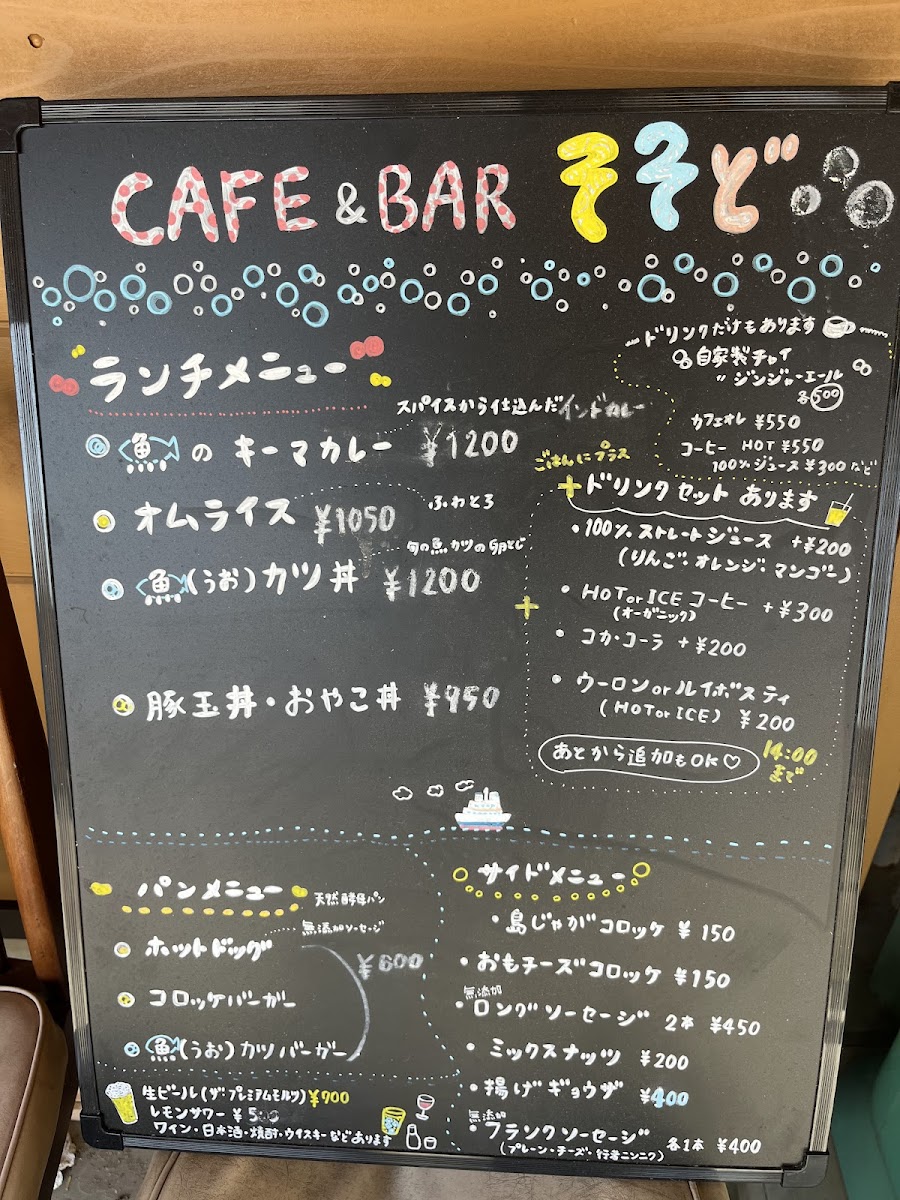 CAFE & BAR そそど
ランチメニュー
スパイスから仕込んだインドカレー
魚のキーマカレー ¥1200
オムライス ¥1050 ふわとろ
旬の魚カツの卵とじ
魚(うお)カツ丼 ¥1200
豚玉丼・おやこ丼 ¥950
ドリンクだけもあります
自家製チャイ
〃 ジンジャーエール
各500
カフェオレ ¥550
コーヒー HOT ¥550
100%ジュース ¥300 など
ごはんにプラス
+ドリンクセット あります
・100%ストレートジュース +¥200
(りんご・オレンジ・マンゴー)
・HOT or ICE コーヒー +¥300
(オーガニック)
+
・コカ・コーラ +¥200
・ウーロン or ルイボスティ
(HOT or ICE) ¥200
あとから追加もOK♡
14:00
まで
パンメニュー
天然酵母パン
無添加ソーセージ
ホットドッグ
¥600
コロッケバーガー
魚(うお)カツバーガー
生ビール(ザ・プレミアムモルツ) ¥700
レモンサワー ¥500
ワイン・日本酒・焼酎・ウイスキーなどあります
サイドメニュー
・島じゃがコロッケ ¥150
・おもチーズコロッケ ¥150
無添加
・ロングソーセージ 2本 ¥450
・ミックスナッツ ¥200
・揚げギョウザ ¥400
無添加
・フランクソーセージ 各1本 ¥400
(プレーン・チーズ・行者ニンニク)